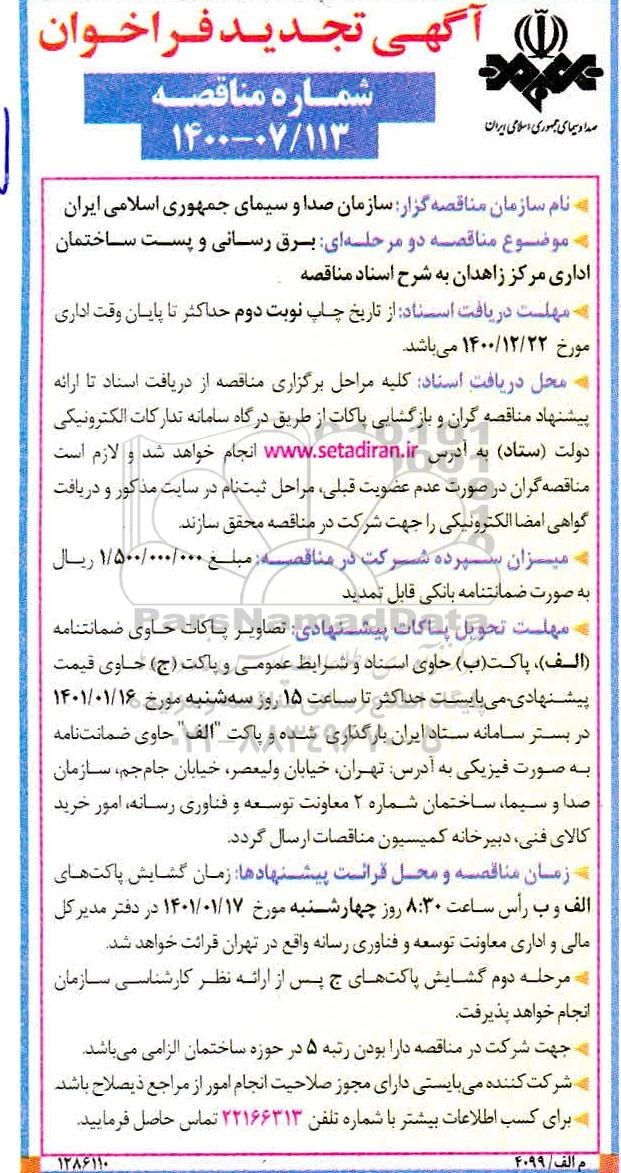 آگهی تجدید فراخوان
صدا و سیمای جمهوری اسلامی ایران
شماره مناقصه
۱۴۰۰-۰۷/۱۱۳
نام سازمان مناقصه‌گزار: سازمان صدا و سیمای جمهوری اسلامی ایران
موضوع مناقصه دو مرحله‌ای: برق رسانی و پست ساختمان
اداری مرکز زاهدان به شرح اسناد مناقصه
مهلت دریافت اسناد: از تاریخ چاپ نوبت دوم حداکثر تا پایان وقت اداری
مورخ ۱۴۰۰/۱۲/۲۲ می‌باشد.
محل دریافت اسناد: کلیه مراحل برگزاری مناقصه از دریافت اسناد تا ارائه
پیشنهاد مناقصه گران و بازگشایی پاکات از طریق درگاه سامانه تدارکات الکترونیکی
دولت (ستاد) به آدرس www.setadiran.ir انجام خواهد شد و لازم است
مناقصه‌گران در صورت عدم عضویت قبلی، مراحل ثبت‌نام در سایت مذکور و دریافت
گواهی امضا الکترونیکی را جهت شرکت در مناقصه محقق سازند.
میزان سپرده شرکت در مناقصه: مبلغ ۱/۵۰۰/۰۰۰/۰۰۰ ریال
به صورت ضمانتنامه بانکی قابل تمدید
مهلت تحویل پاکات پیشنهادی: تصاویر پاکات حاوی ضمانتنامه
(الف)، پاکت(ب) حاوی اسناد و شرایط عمومی و پاکت (ج) حاوی قیمت
پیشنهادی-می‌بایست حداکثر تا ساعت ۱۵ روز سه‌شنبه مورخ ۱۴۰۱/۰۱/۱۶
در بستر سامانه ستاد ایران بارگذاری شده و پاکت "الف" حاوی ضمانت‌نامه
به صورت فیزیکی به آدرس: تهران، خیابان ولیعصر، خیابان جام‌جم، سازمان
صدا و سیما، ساختمان شماره ۲ معاونت توسعه و فناوری رسانه، امور خرید
کالای فنی، دبیرخانه کمیسیون مناقصات ارسال گردد.
زمان مناقصه و محل قرائت پیشنهادها: زمان گشایش پاکت‌های
الف و ب رأس ساعت ۸:۳۰ روز چهارشنبه مورخ ۱۴۰۱/۰۱/۱۷ در دفتر مدیرکل
مالی و اداری معاونت توسعه و فناوری رسانه واقع در تهران قرائت خواهد شد.
مرحله دوم گشایش پاکت‌های ج پس از ارائه نظر کارشناسی سازمان
انجام خواهد پذیرفت.
جهت شرکت در مناقصه دارا بودن رتبه ۵ در حوزه ساختمان الزامی می‌باشد.
شرکت‌کننده می‌بایستی دارای مجوز صلاحیت انجام امور از مراجع ذیصلاح باشد.
برای کسب اطلاعات بیشتر با شماره تلفن ۲۲۱۶۶۳۱۳ تماس حاصل فرمایید.
م الف/۴۰۹۹
۱۲۸۶۱۱۰
ParsNamadData
۰۲۱-۸۸۳۴۹۶۷۰-۵